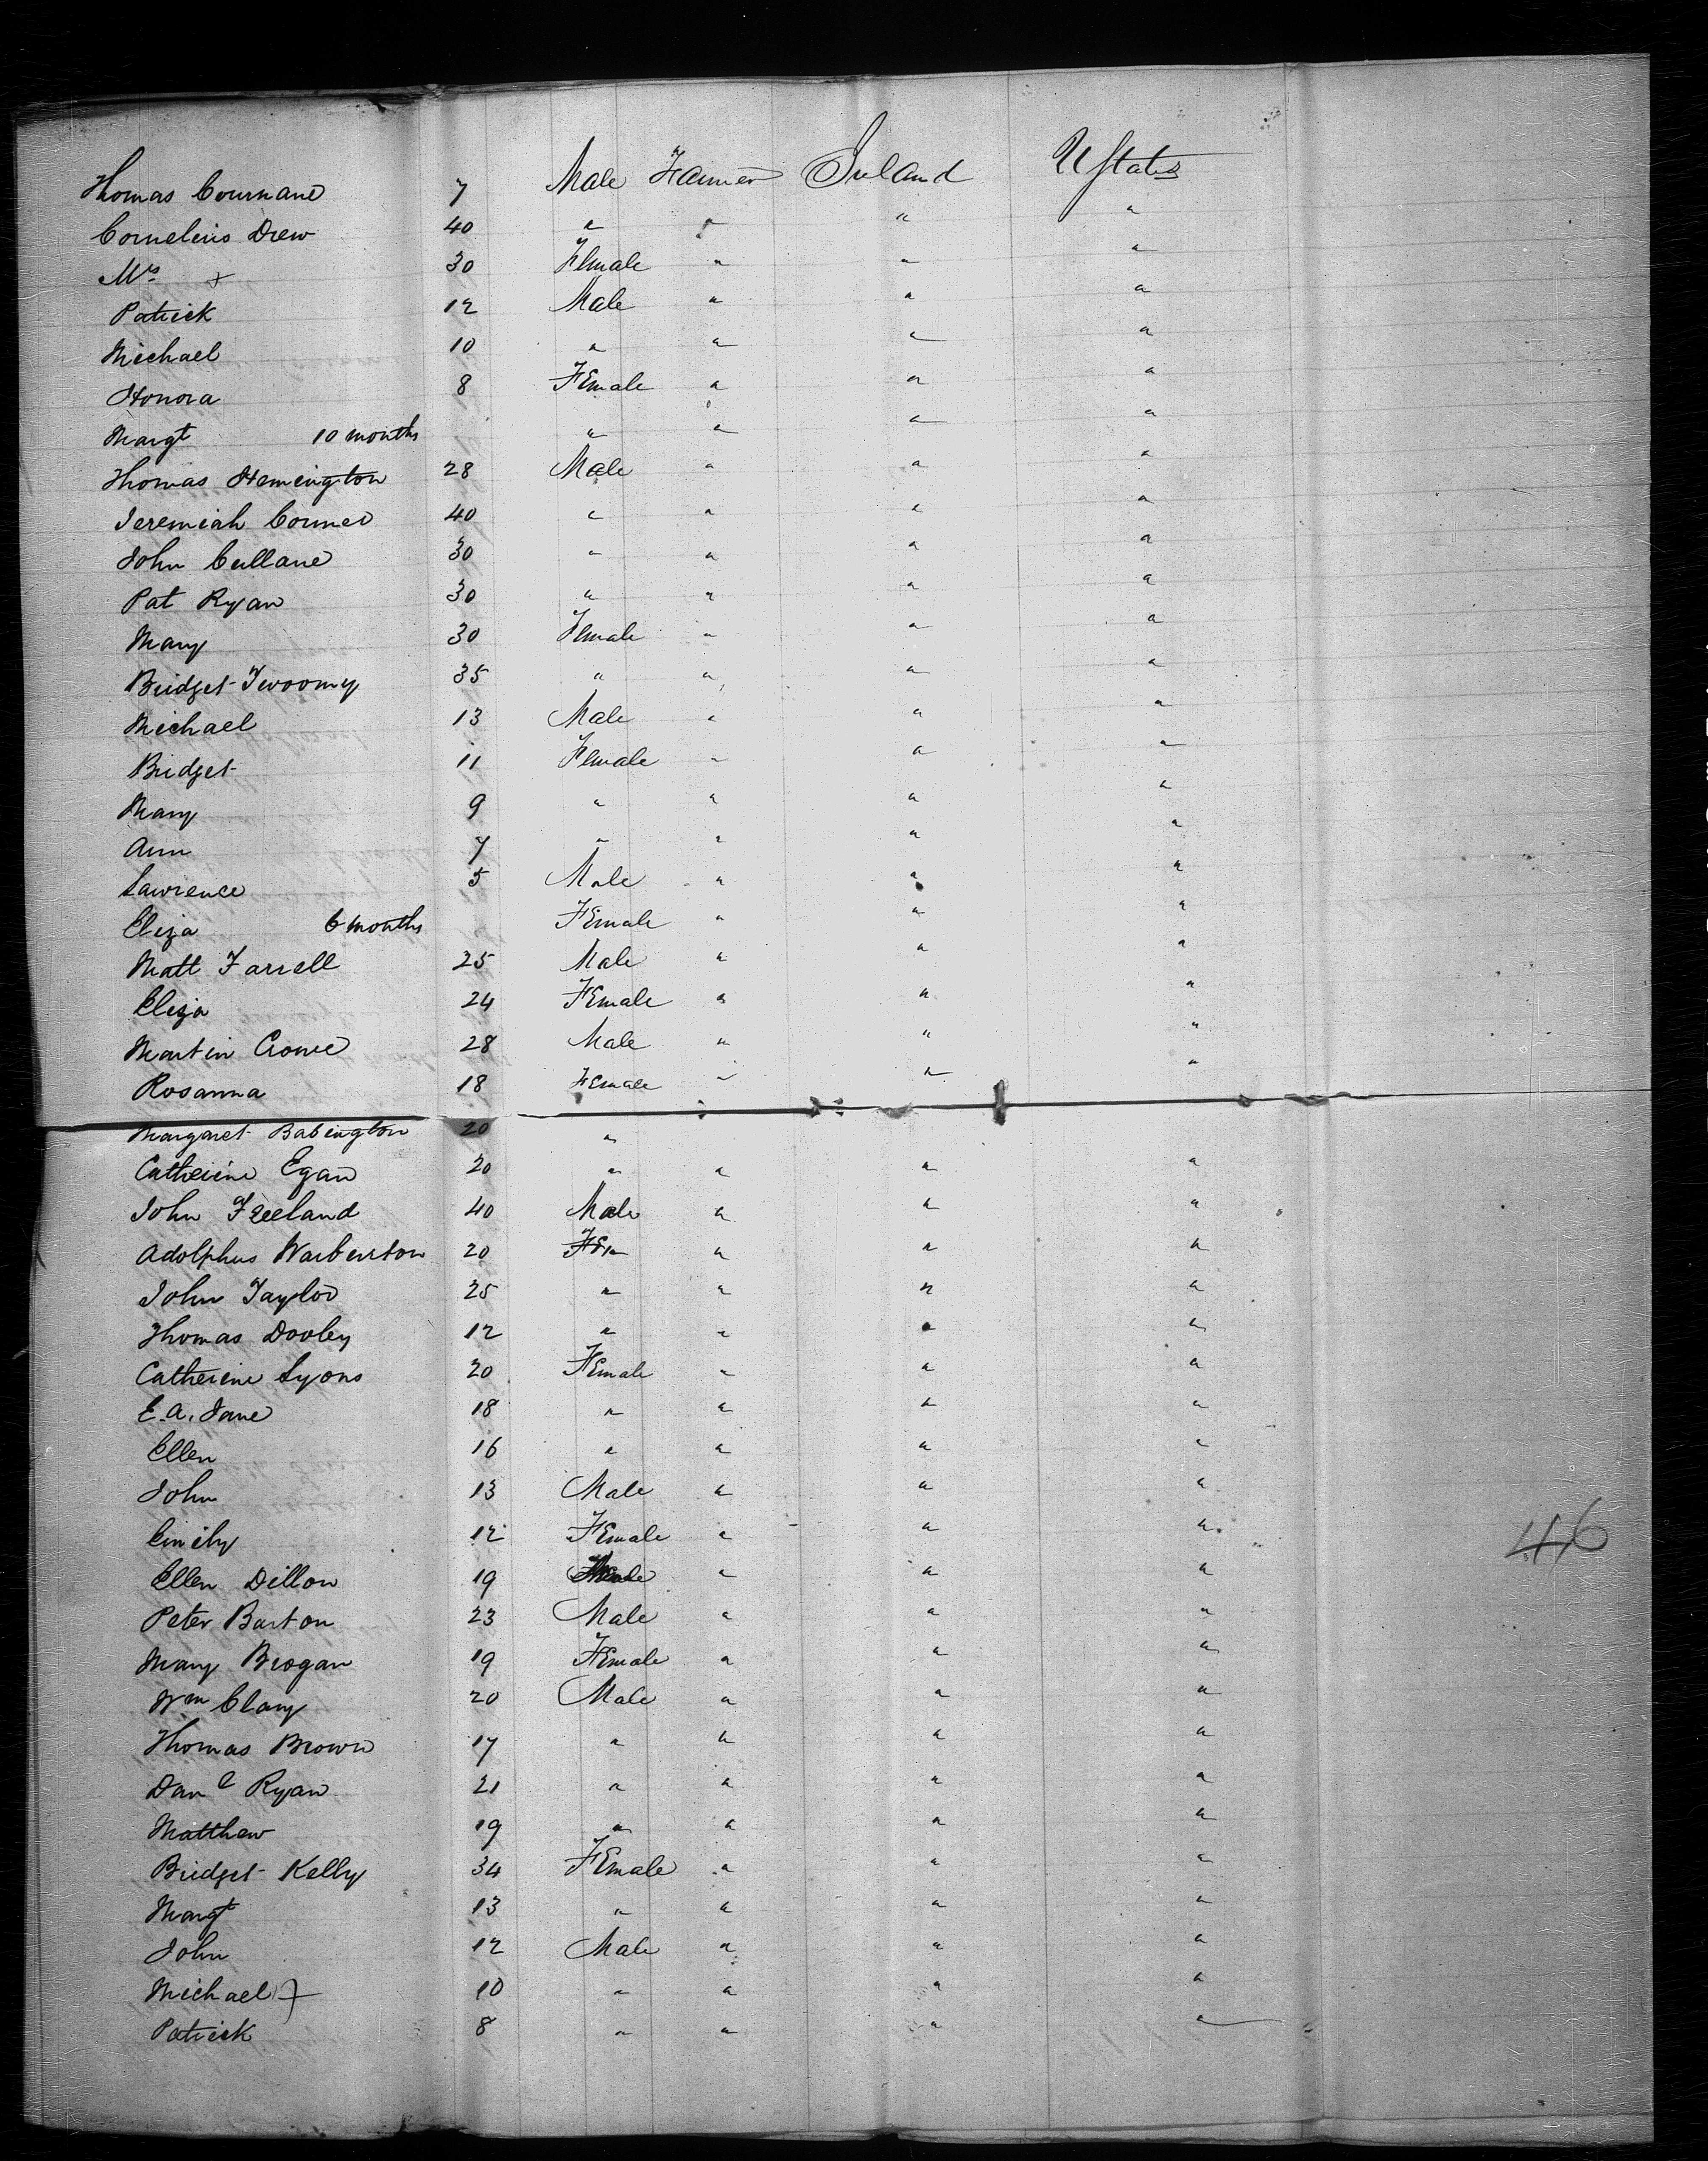 Thomas Cournane 7 Male Farmer Ireland U States
Cornelius Drew 40 " " " "
Mrs + 30 Female " " "
Patrick 12 Male " " "
Michael 10 " " " "
Honora 8 Female " " "
Margt 10 months " " " "
Thomas Hemington 28 Male " " "
Jeremiah Conner 40 " " " "
John Cullane 30 " " " "
Pat Ryan 30 " " " "
Mary 30 Female " " "
Bridget Twoomy 35 " " " "
Michael 13 Male " " "
Bridget 11 Female " " "
Mary 9 " " " "
Ann 7 " " " "
Lawrence 5 Male " " "
Eliza 6 months Female " " "
Matt Farrell 25 Male " " "
Eliza 24 Female " " "
Martin Crowe 28 Male " " "
Rosanna 18 Female " " "
Margaret Babington 20 "
Catherine Egan 20 " " " "
John Freeland 40 Male " " "
Adolphus Warburton 20 " " "
John Taylor 25 " " " "
Thomas Dooley 12 " " " "
Catherine Lyons 20 Female " " "
E. A. Jane 18 " " " "
Ellen 16 " " " "
John 13 Male " " "
Emily 12 Female " " "
Ellen Dillon 19 " " "
Peter Barton 23 Male " " "
Mary Brogan 19 Female " " "
Wm Clary 20 Male " " "
Thomas Brown 17 " " " "
Danl Ryan 21 " " " "
Matthew 19 " " " "
Bridget Kelly 34 Female " " "
Margt 13 " " " "
John 12 Male " " "
Michael + 10 " " " "
Patrick 8 " " " "
46